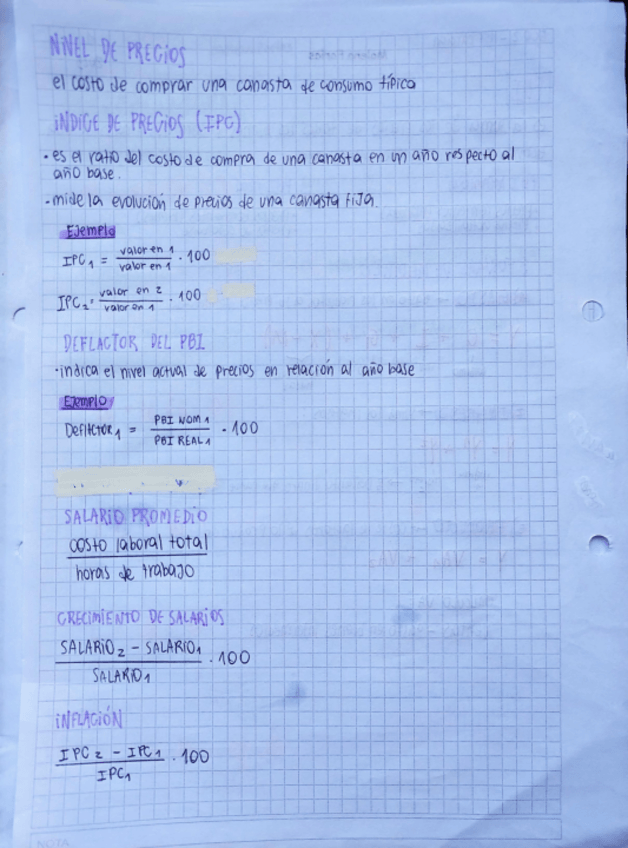 NIVEL DE PRECIOS
el costo de comprar una canasta de consumo típica
ÍNDICE DE PRECIOS (IPC)
• es el ratio del costo de compra de una canasta en un año respecto al
año base.
• mide la evolución de precios de una canasta FIJA.
Ejemplo
IPC₁ = valor en 1 / valor en 1 . 100
IPC₂ = valor en 2 / valor en 1 . 100
DEFLACTOR DEL PBI
• indica el nivel actual de precios en relación al año base
EJEMPLO
DEFLACTOR₁ = PBI NOM₁ / PBI REAL₁ . 100
SALARIO PROMEDIO
costo laboral total
horas de trabajo
CRECIMIENTO DE SALARIOS
SALARIO₂ - SALARIO₁ / SALARIO₁ . 100
INFLACIÓN
IPC₂ - IPC₁ / IPC₁ . 100
NOTA